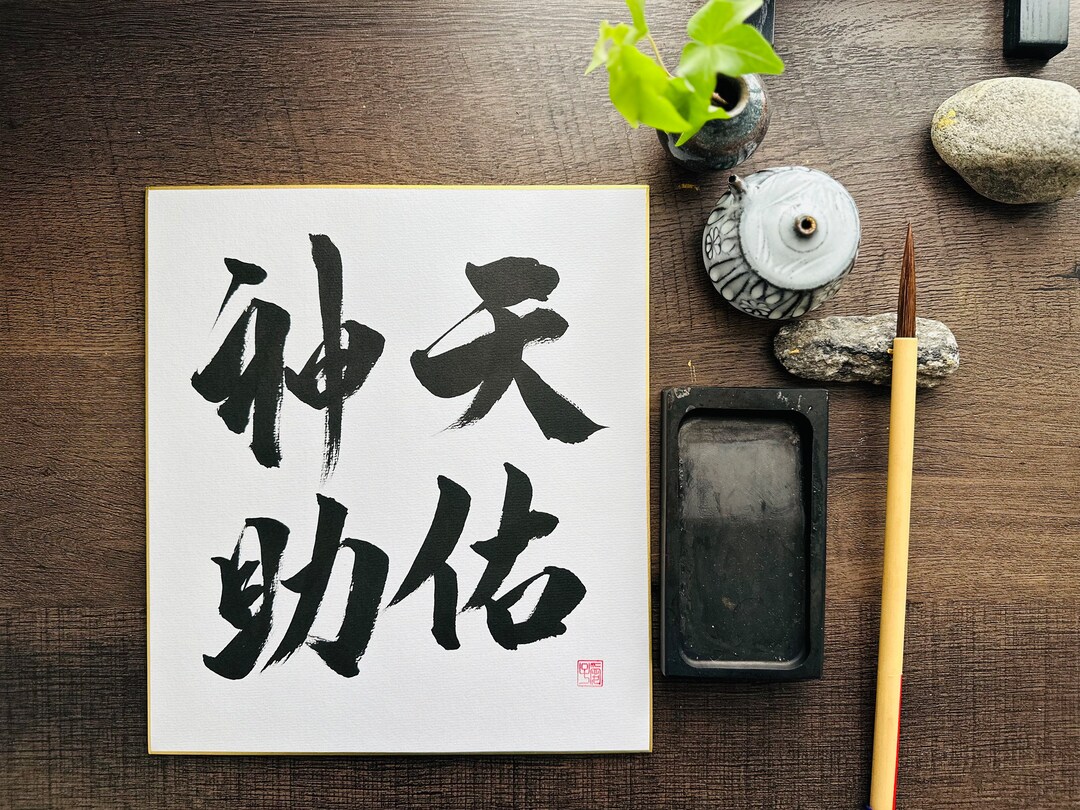 天佑
神助